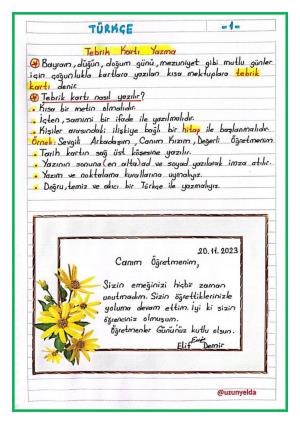 TÜRKÇE
-1-
Tebrik Kartı Yazma
Bayram, düğün, doğum günü, mezuniyet gibi mutlu günler
için çoğunlukla kartlara yazılan kısa mektuplara tebrik
kartı denir.
Tebrik kartı nasıl yazılır?
Kısa bir metin olmalıdır.
İçten, samimi bir ifade ile yazılmalıdır.
Kişiler arasındaki ilişkiye bağlı bir hitap ile başlanmalıdır.
Örnek: Sevgili Arkadaşım, Canım Kızım, Değerli Öğretmenim
Tarih kartın sağ üst köşesine yazılır.
Yazının sonuna (en alta) ad ve soyad yazılarak imza atılır.
Yazım ve noktalama kurallarına uymalıyız.
Doğru, temiz ve akıcı bir Türkçe ile yazmalıyız.
20.11.2023
Canım Öğretmenim,
Sizin emeğinizi hiçbir zaman
unutmadım. Sizin öğrettiklerinizle
yoluma devam ettim. İyi ki sizin
öğrenciniz olmuşum.
Öğretmenler Gününüz kutlu olsun.
Elif Demir
@uzunyelda